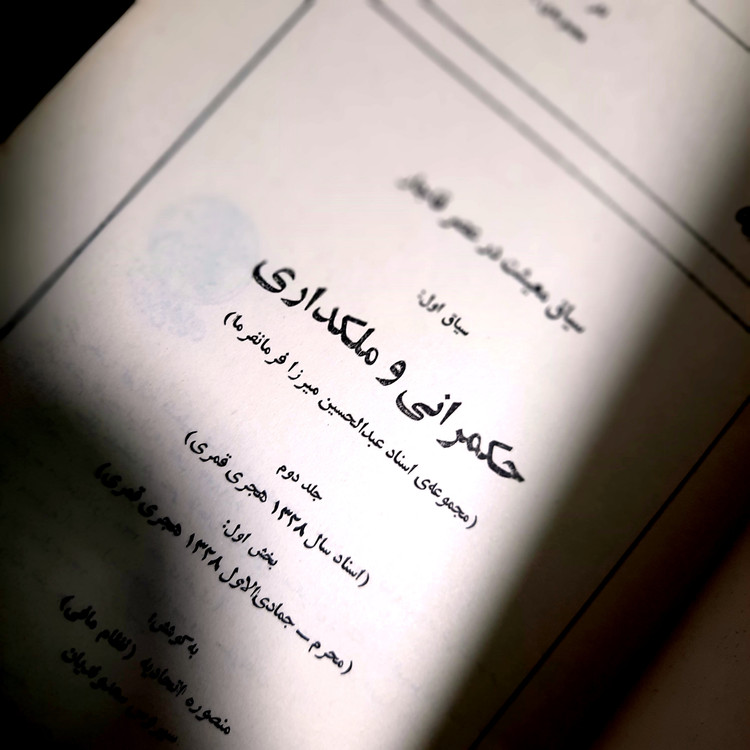 سیاق معیشت در عصر قاجار
سیاق اول:
حکمرانی و ملکداری
(مجموعه‌ی اسناد عبدالحسین میرزا فرمانفرما)
جلد دوم
(اسناد سال ۱۳۲۸ هجری قمری)
بخش اول:
(محرم ـ جمادی‌الاول ۱۳۲۸ هجری قمری)
به کوشش:
منصوره اتحادیه (نظام مافی)
سیروس سعدوندیان